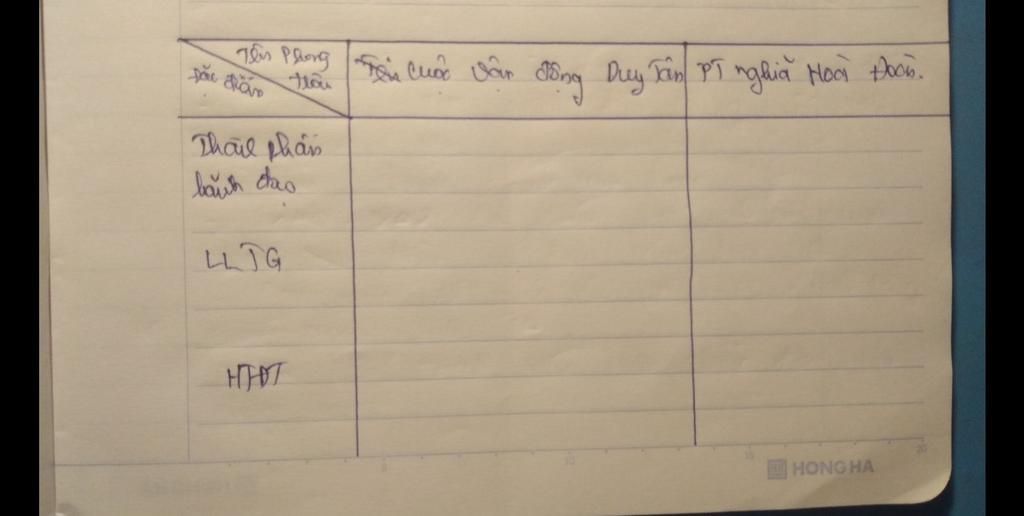 Tên Phong trào
Đặc điểm
Tên cuộc vận động Duy Tân
PT nghĩa Hoà Đoàn.
Thành phần
lãnh đạo
LLTG
HTĐT
HONG HA